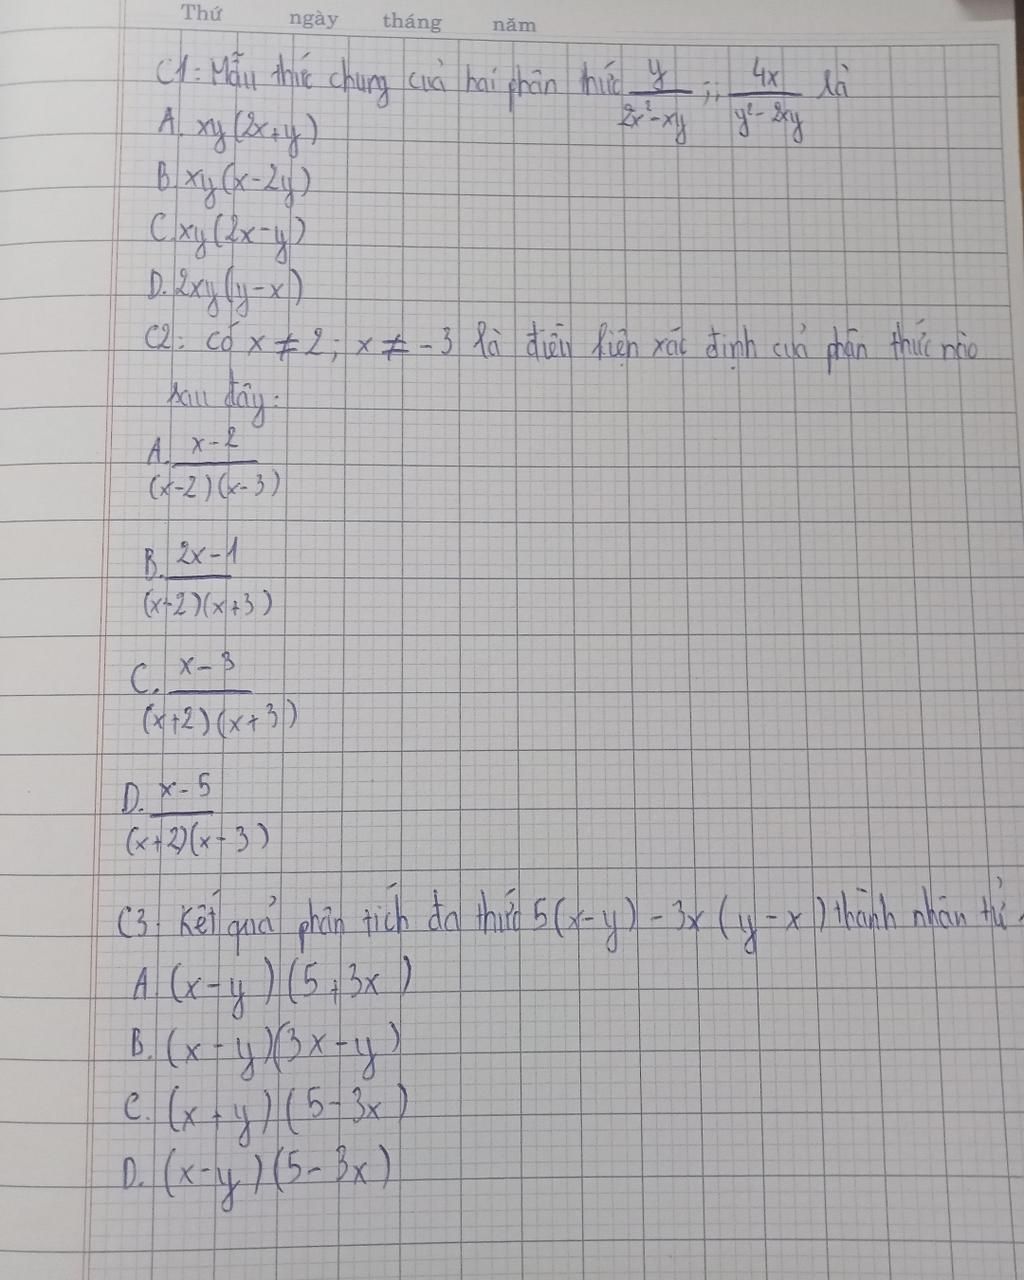 Thứ ngày tháng năm
C1: Mẫu thức chung của hai phân thức y/(2x²-xy) ;; 4x/(y²-2xy) là
A. xy(2x+y)
B. xy(x-2y)
C. xy(2x-y)
D. 2xy(y-x)
C2: Có x ≠ 2; x ≠ -3 là điều kiện xác định của phân thức nào
sau đây:
A. (x-2)/((x-2)(x-3))
B. (2x-1)/((x-2)(x+3))
C. (x-3)/((x+2)(x+3))
D. (x-5)/((x+2)(x-3))
C3: Kết quả phân tích đa thức 5(x-y) - 3x(y-x) thành nhân tử
A. (x-y)(5+3x)
B. (x-y)(3x-y)
C. (x+y)(5-3x)
D. (x-y)(5-3x)